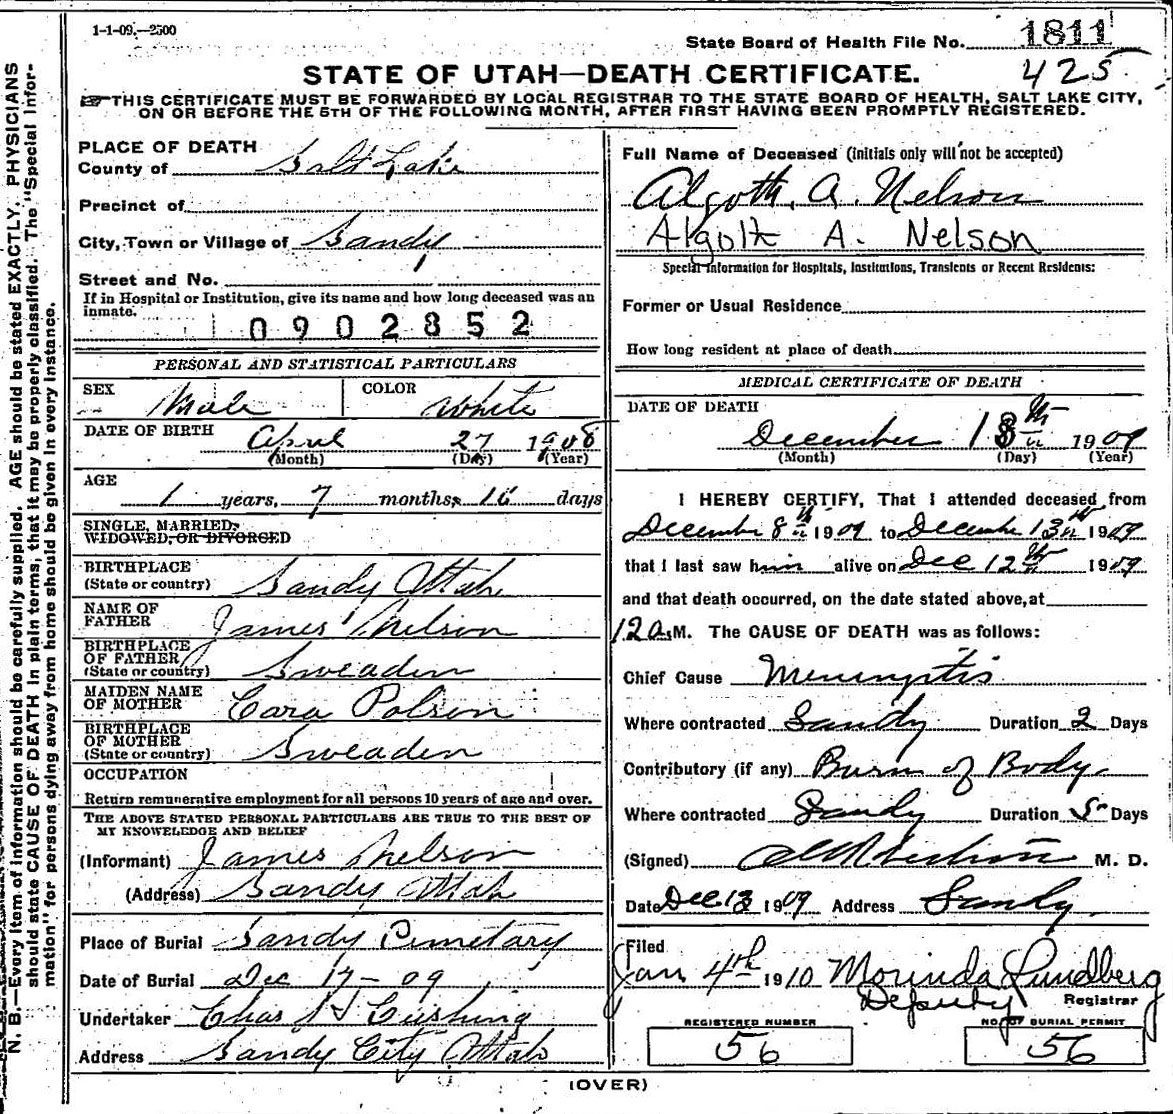 1-1-09.—2500
State Board of Health File No. 1811
425
STATE OF UTAH—DEATH CERTIFICATE.
THIS CERTIFICATE MUST BE FORWARDED BY LOCAL REGISTRAR TO THE STATE BOARD OF HEALTH, SALT LAKE CITY,
ON OR BEFORE THE 5TH OF THE FOLLOWING MONTH, AFTER FIRST HAVING BEEN PROMPTLY REGISTERED.
N. B.—Every item of information should be carefully supplied. AGE should be stated EXACTLY. PHYSICIANS
should state CAUSE OF DEATH in plain terms, that it may be properly classified. The "Special Infor-
mation" for persons dying away from home should be given in every instance.
PLACE OF DEATH
County of Salt Lake
Precinct of
City, Town or Village of Sandy
Street and No.
If in Hospital or Institution, give its name and how long deceased was an
inmate.
0902852
PERSONAL AND STATISTICAL PARTICULARS
SEX Male COLOR White
DATE OF BIRTH April 27 1908
(Month) (Day) (Year)
AGE
1 years, 7 months, 16 days
SINGLE, MARRIED,
WIDOWED, OR DIVORCED
BIRTHPLACE
(State or country) Sandy Utah
NAME OF
FATHER James Nelson
BIRTHPLACE
OF FATHER
(State or country) Sweaden
MAIDEN NAME
OF MOTHER Cara Polson
BIRTHPLACE
OF MOTHER
(State or country) Sweaden
OCCUPATION
Return remunerative employment for all persons 10 years of age and over.
THE ABOVE STATED PERSONAL PARTICULARS ARE TRUE TO THE BEST OF
MY KNOWLEDGE AND BELIEF
(Informant) James Nelson
(Address) Sandy Utah
Place of Burial Sandy Cemetary
Date of Burial Dec 17-09
Undertaker Chas Cushing
Address Sandy City Utah
Full Name of Deceased (initials only will not be accepted)
Algoth. A. Nelson
Algolt A. Nelson
Special Information for Hospitals, Institutions, Transients or Recent Residents:
Former or Usual Residence
How long resident at place of death
MEDICAL CERTIFICATE OF DEATH
DATE OF DEATH
December 13th 1909
(Month) (Day) (Year)
I HEREBY CERTIFY, That I attended deceased from
December 8th 1909 to December 13th 1909
that I last saw him alive on Dec 12th 1909
and that death occurred, on the date stated above, at
12 a.M. The CAUSE OF DEATH was as follows:
Chief Cause Meningitis
Where contracted Sandy Duration 2 Days
Contributory (if any) Burn of Body.
Where contracted Sandy Duration 5 Days
(Signed) M. D.
Date Dec 13 1909 Address Sandy
Filed
Jan 4th 1910 Morinda Lundberg
Deputy Registrar
REGISTERED NUMBER NO. OF BURIAL PERMIT
56 56
(OVER)